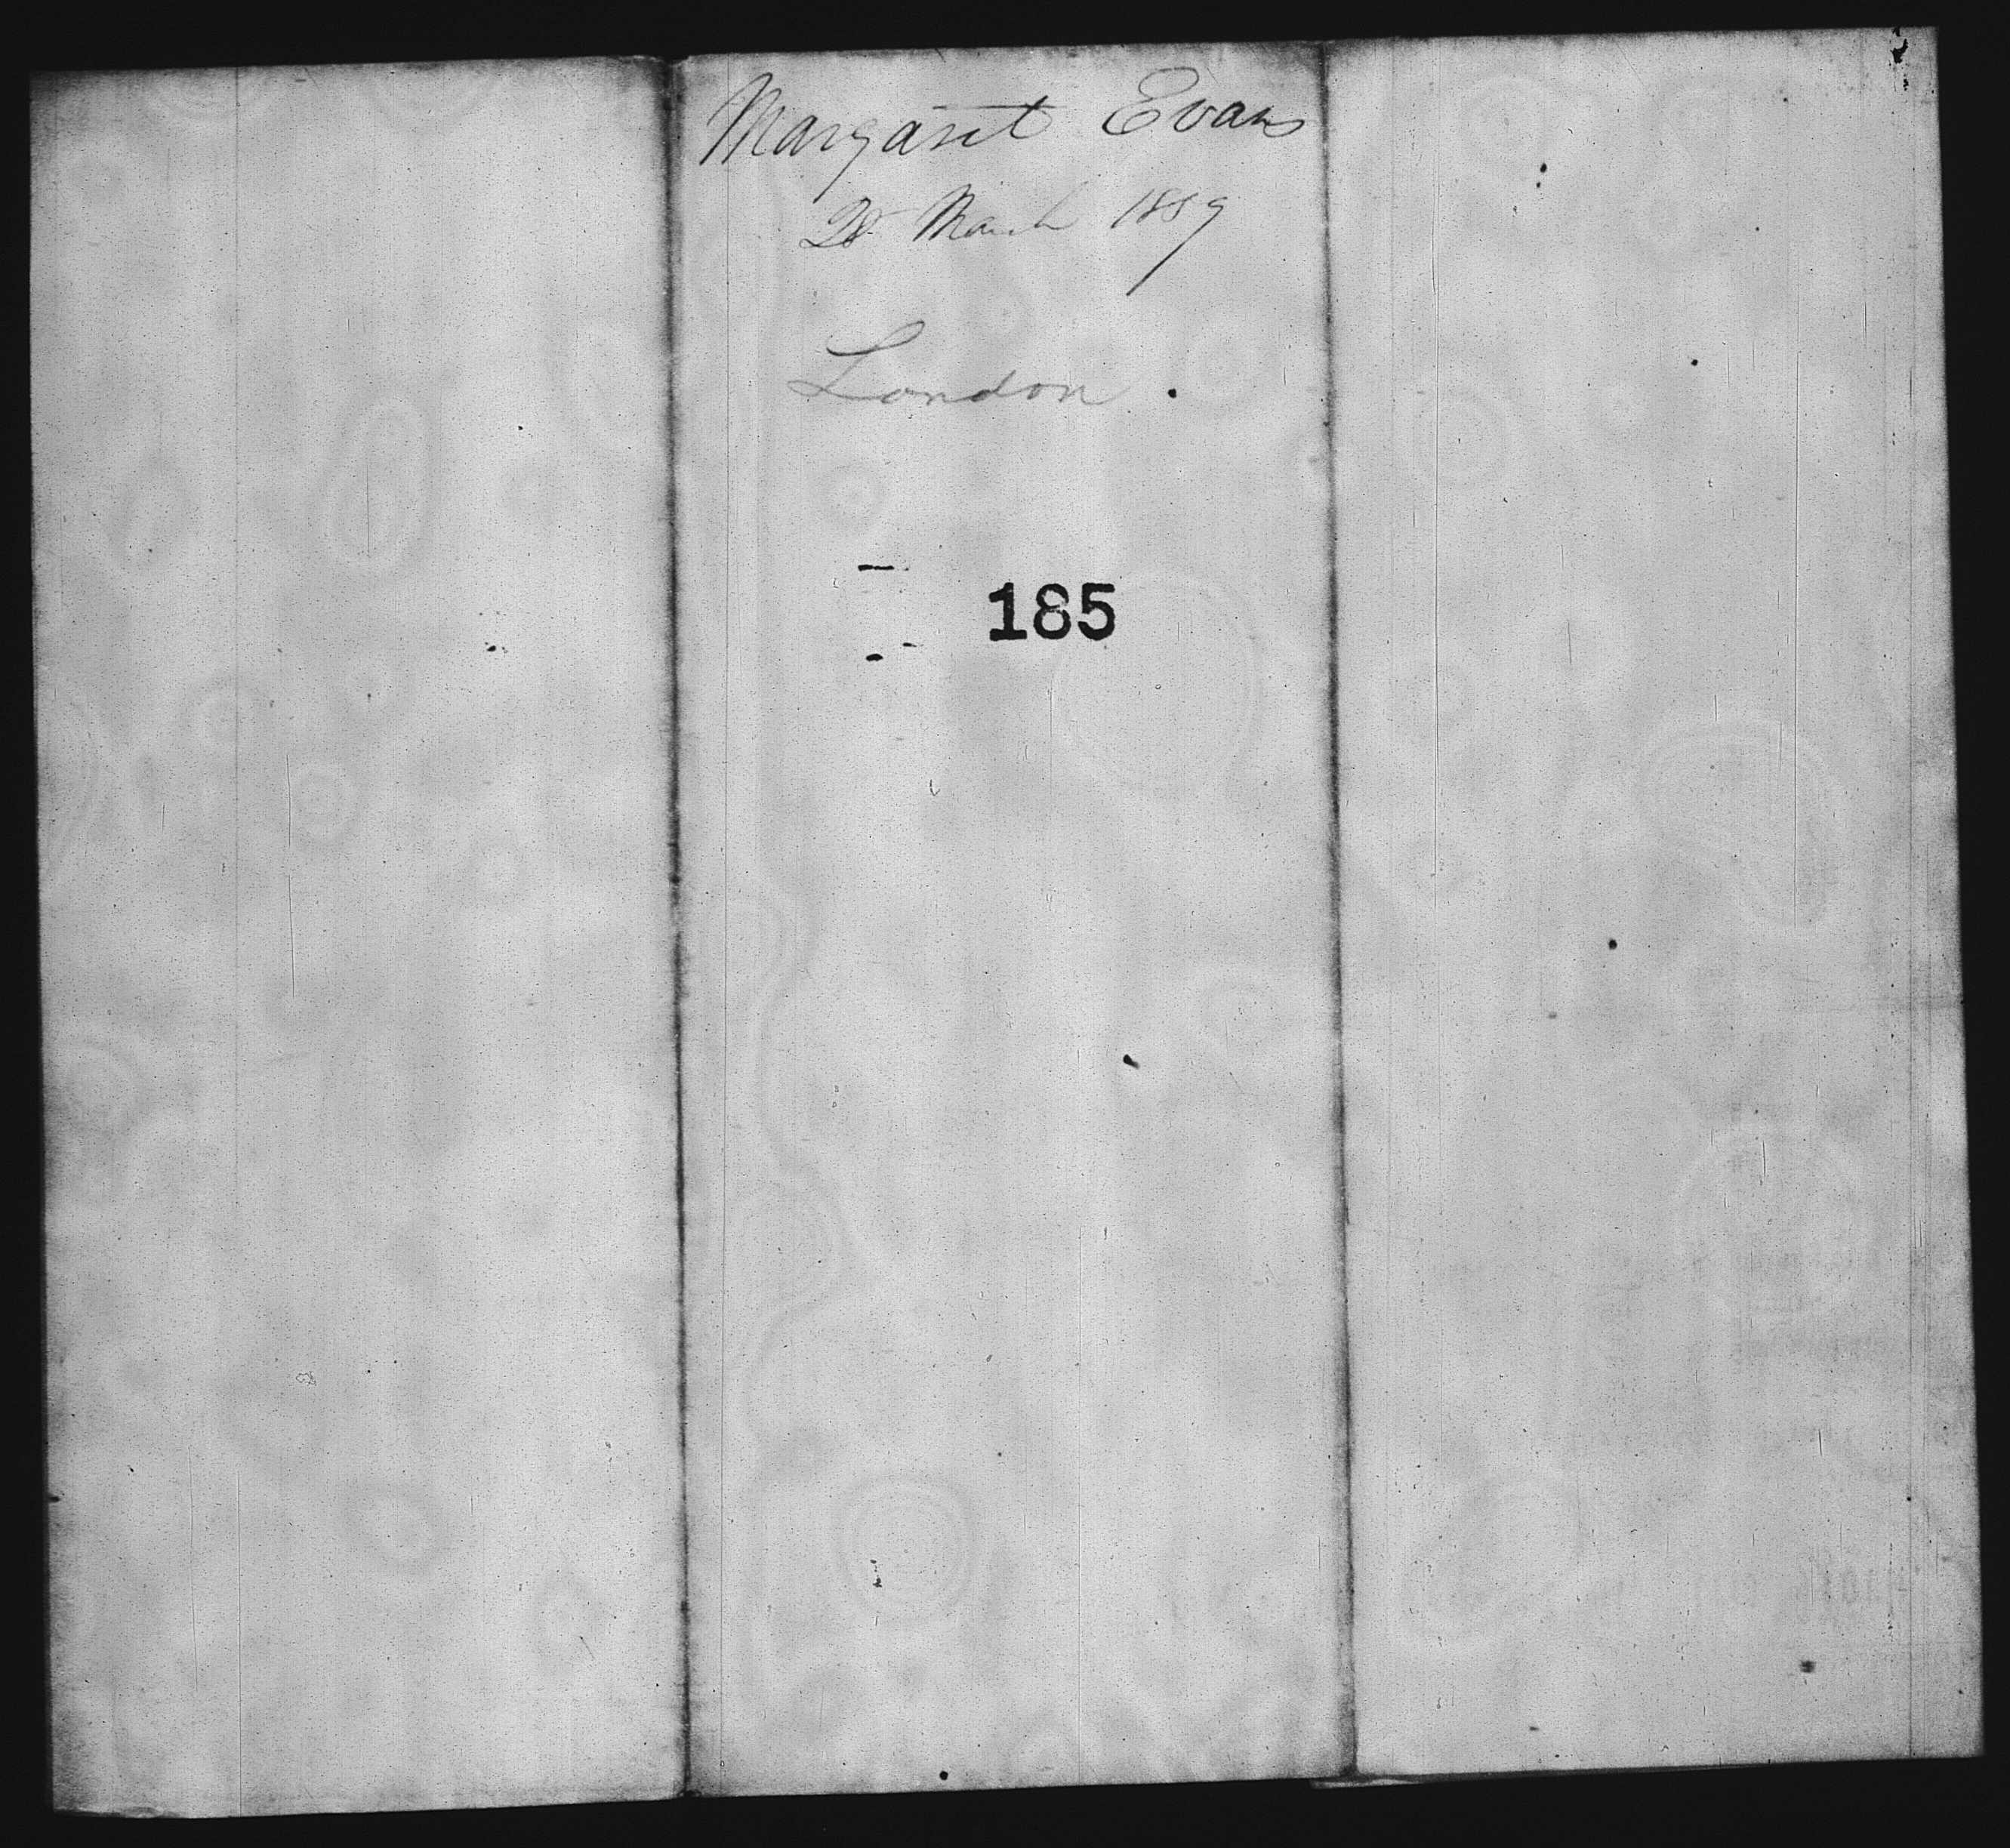 Margaret Evans
28 March 1889
London.
185